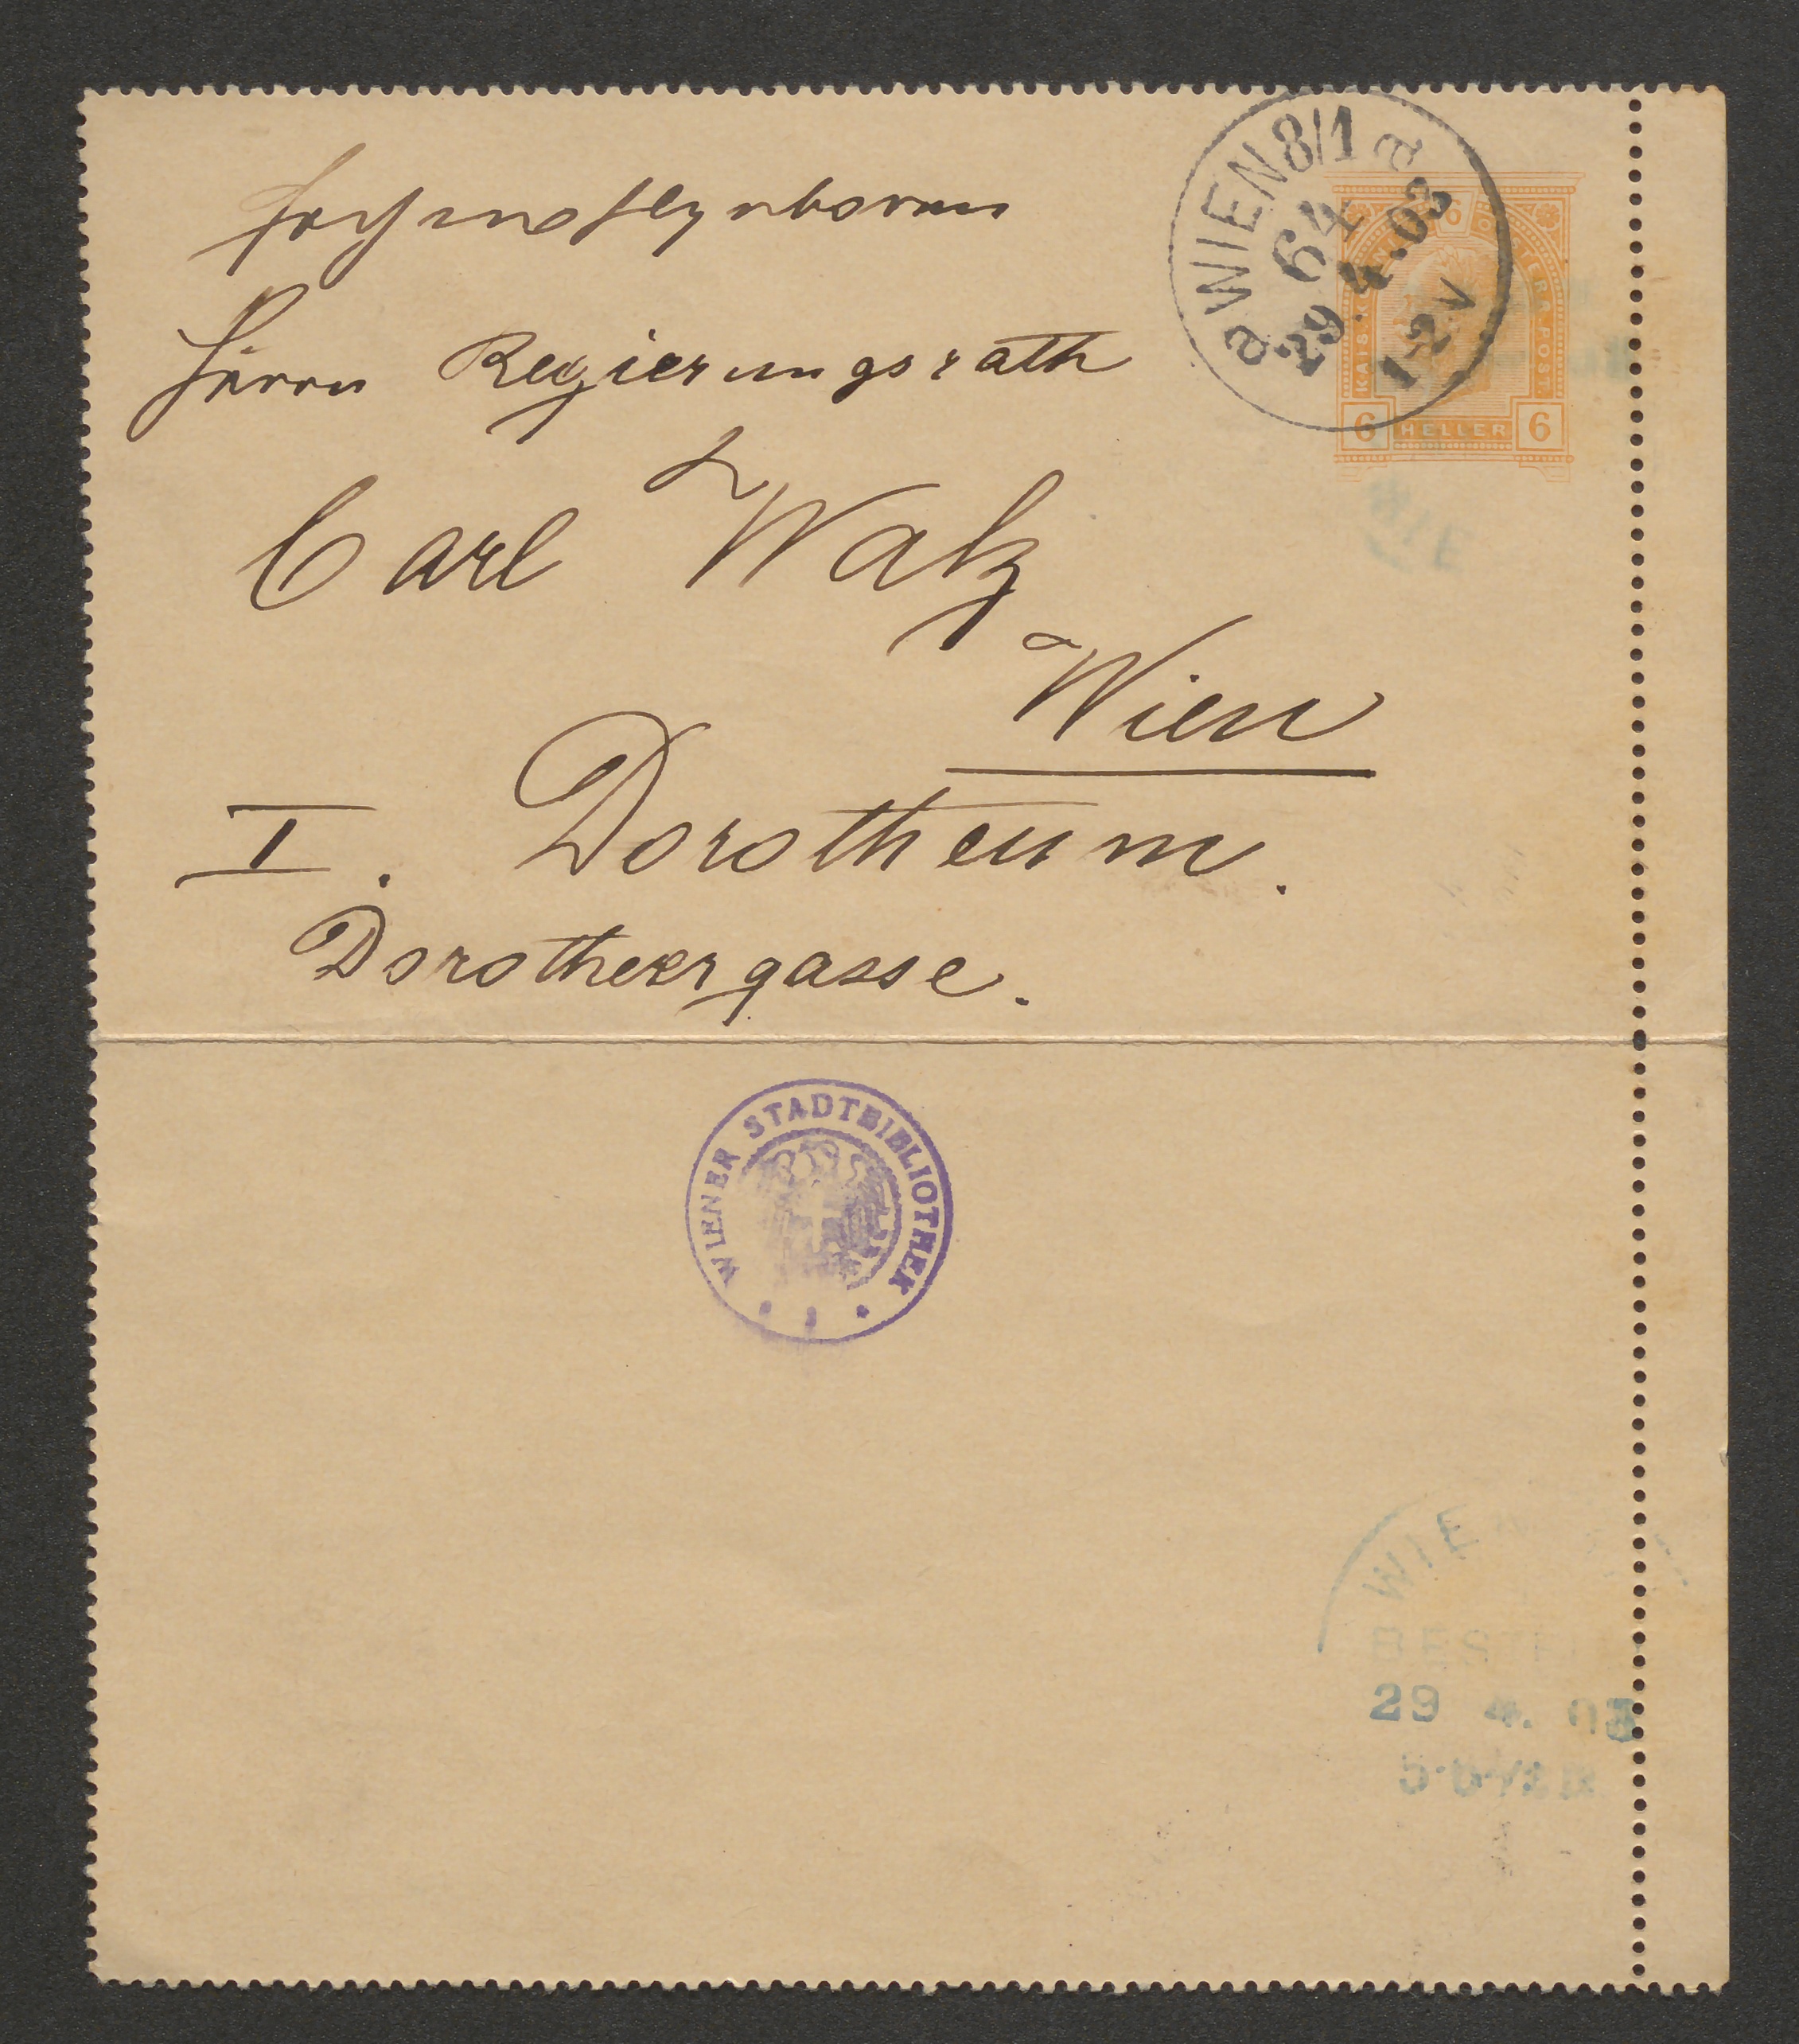 Hochwohlgeboren
Herrn Regierungsrath
Carl Walz
Wien
I. Dorotheum.
Dorotheergasse.
a WIEN 8/1 a
64
29.4.03
1-2V
KAIS. KÖN. ÖSTERR. POST.
6 HELLER 6
WIE
WIENER STADTBIBLIOTHEK
WIEN
BESTELLT
29 4. 03